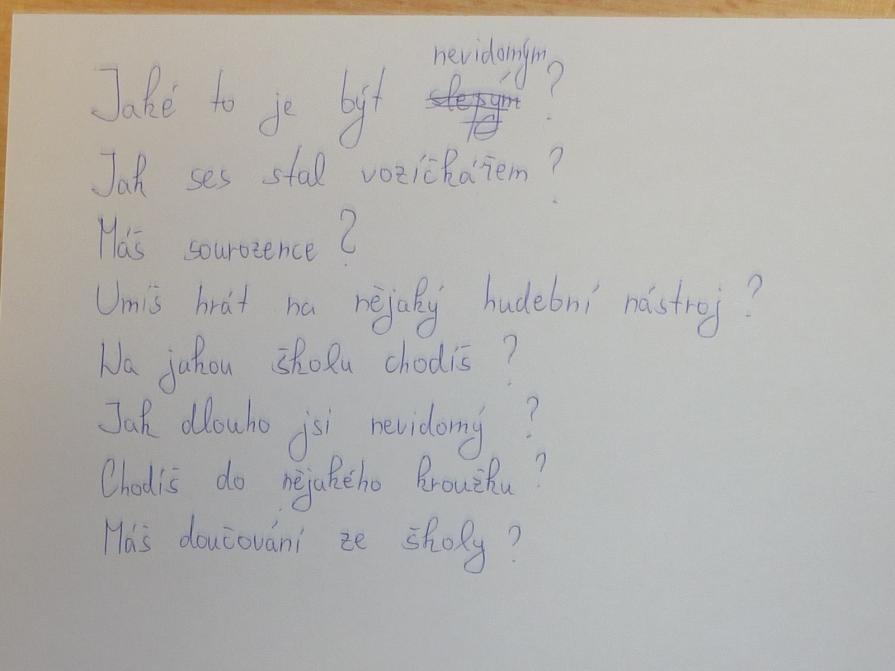 Jaké to je být nevidomým ?
Jak ses stal vozíčkářem ?
Máš sourozence ?
Umíš hrát na nějaký hudební nástroj ?
Na jakou školu chodíš ?
Jak dlouho jsi nevidomý ?
Chodíš do nějakého kroužku ?
Máš doučování ze školy ?